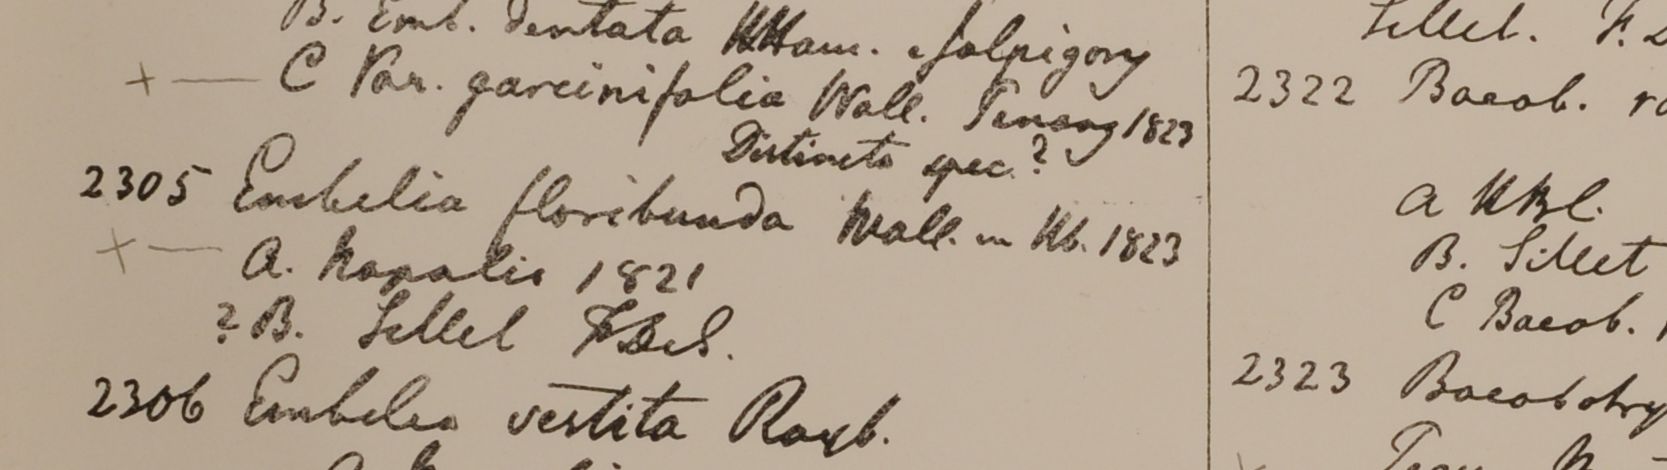 B. Emb. dentata HHam. e Jalpigory
+ — C Var. garcinifolia Wall. Penang 1823
Distincta spec.?
2305 Embelia floribunda Wall. in Hb. 1823
+ — A. Napalia 1821
? B. Sillet FDeS.
2306 Embelia vestita Roxb.
Sillet. F. D
2322 Baeob. ra
a HBC.
B. Sillet
C Baeob.
2323 Baeobotry